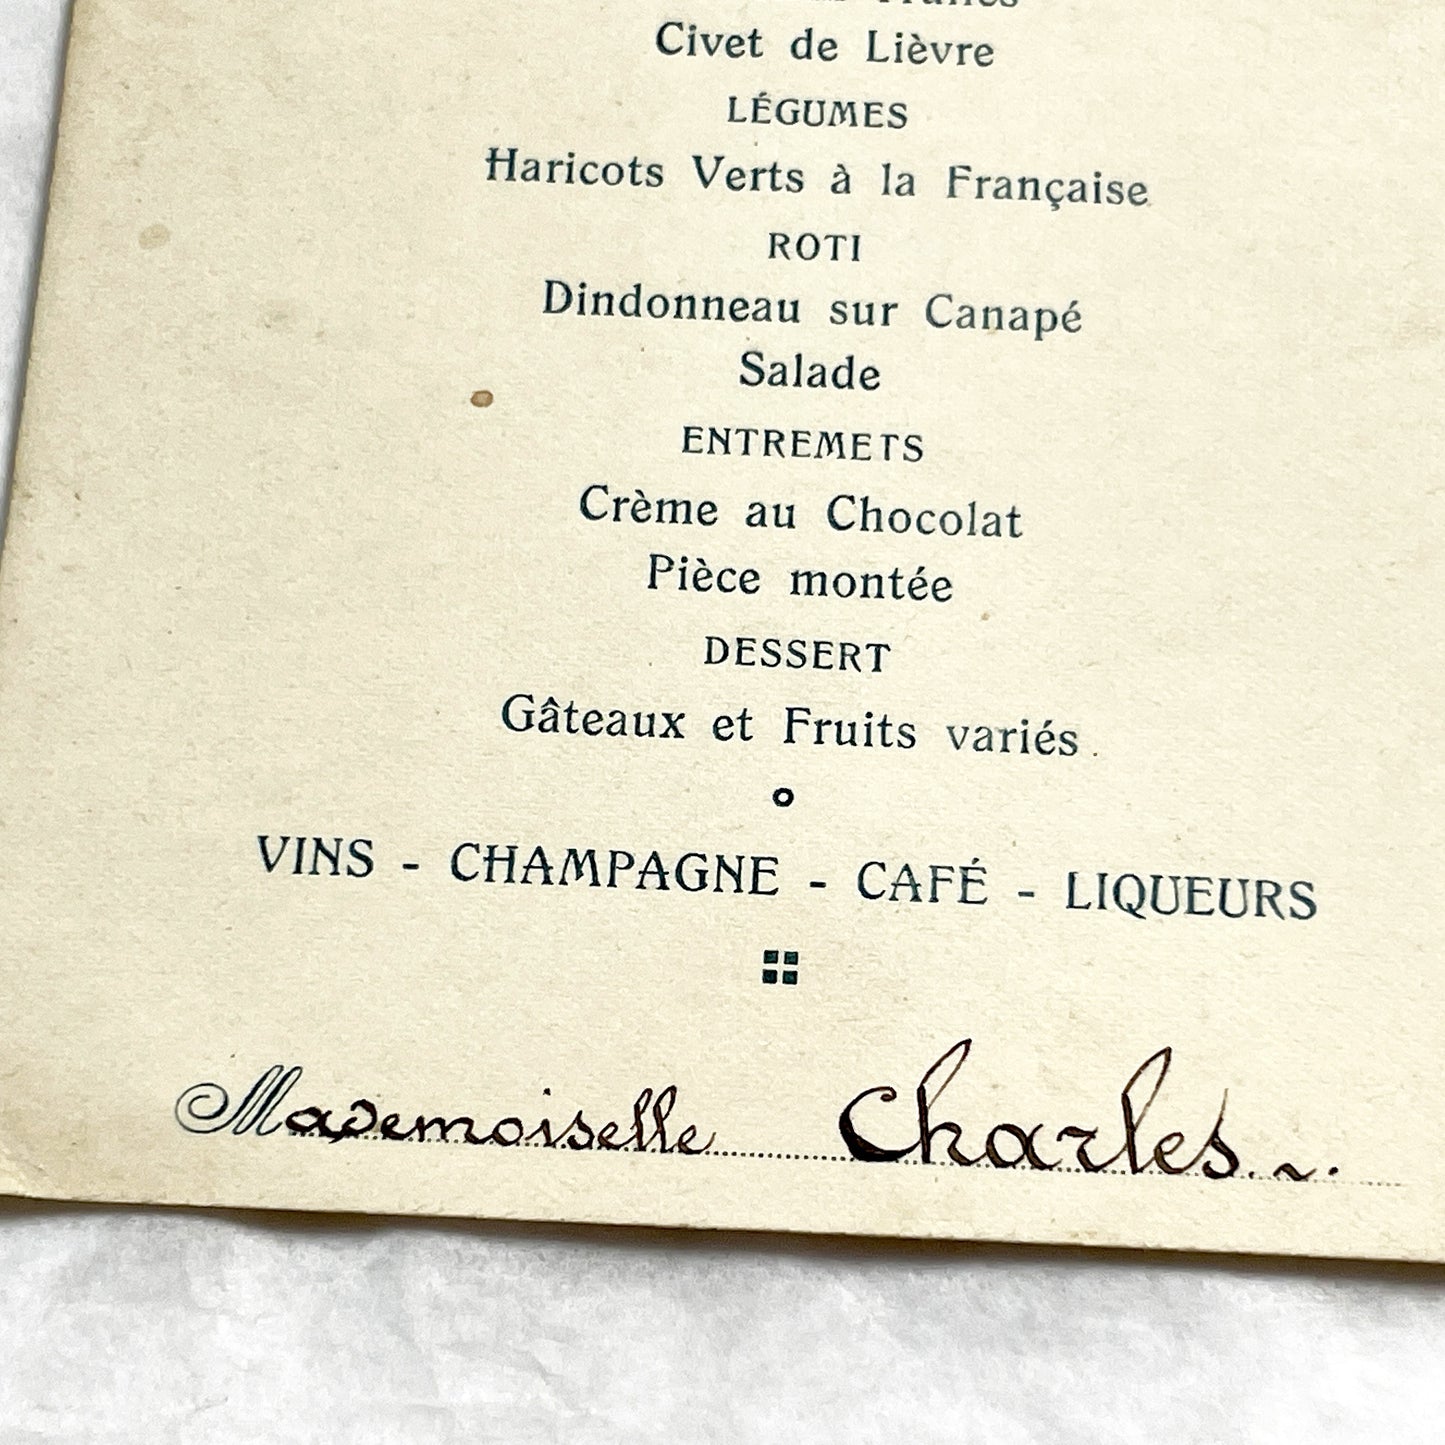 Civet de Lièvre
LÉGUMES
Haricots Verts à la Française
ROTI
Dindonneau sur Canapé
Salade
ENTREMETS
Crème au Chocolat
Pièce montée
DESSERT
Gâteaux et Fruits variés.
VINS - CHAMPAGNE - CAFÉ - LIQUEURS
Mademoiselle Charles